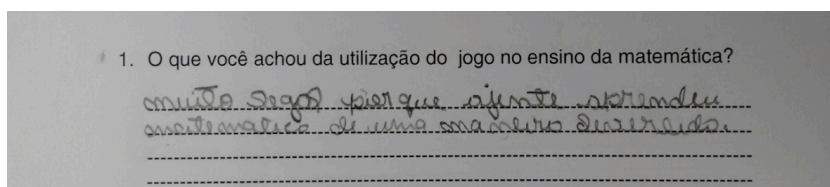 1. O que você achou da utilização do jogo no ensino da matemática?
muito legal porque ajente aprendeu
matematica de uma maneira